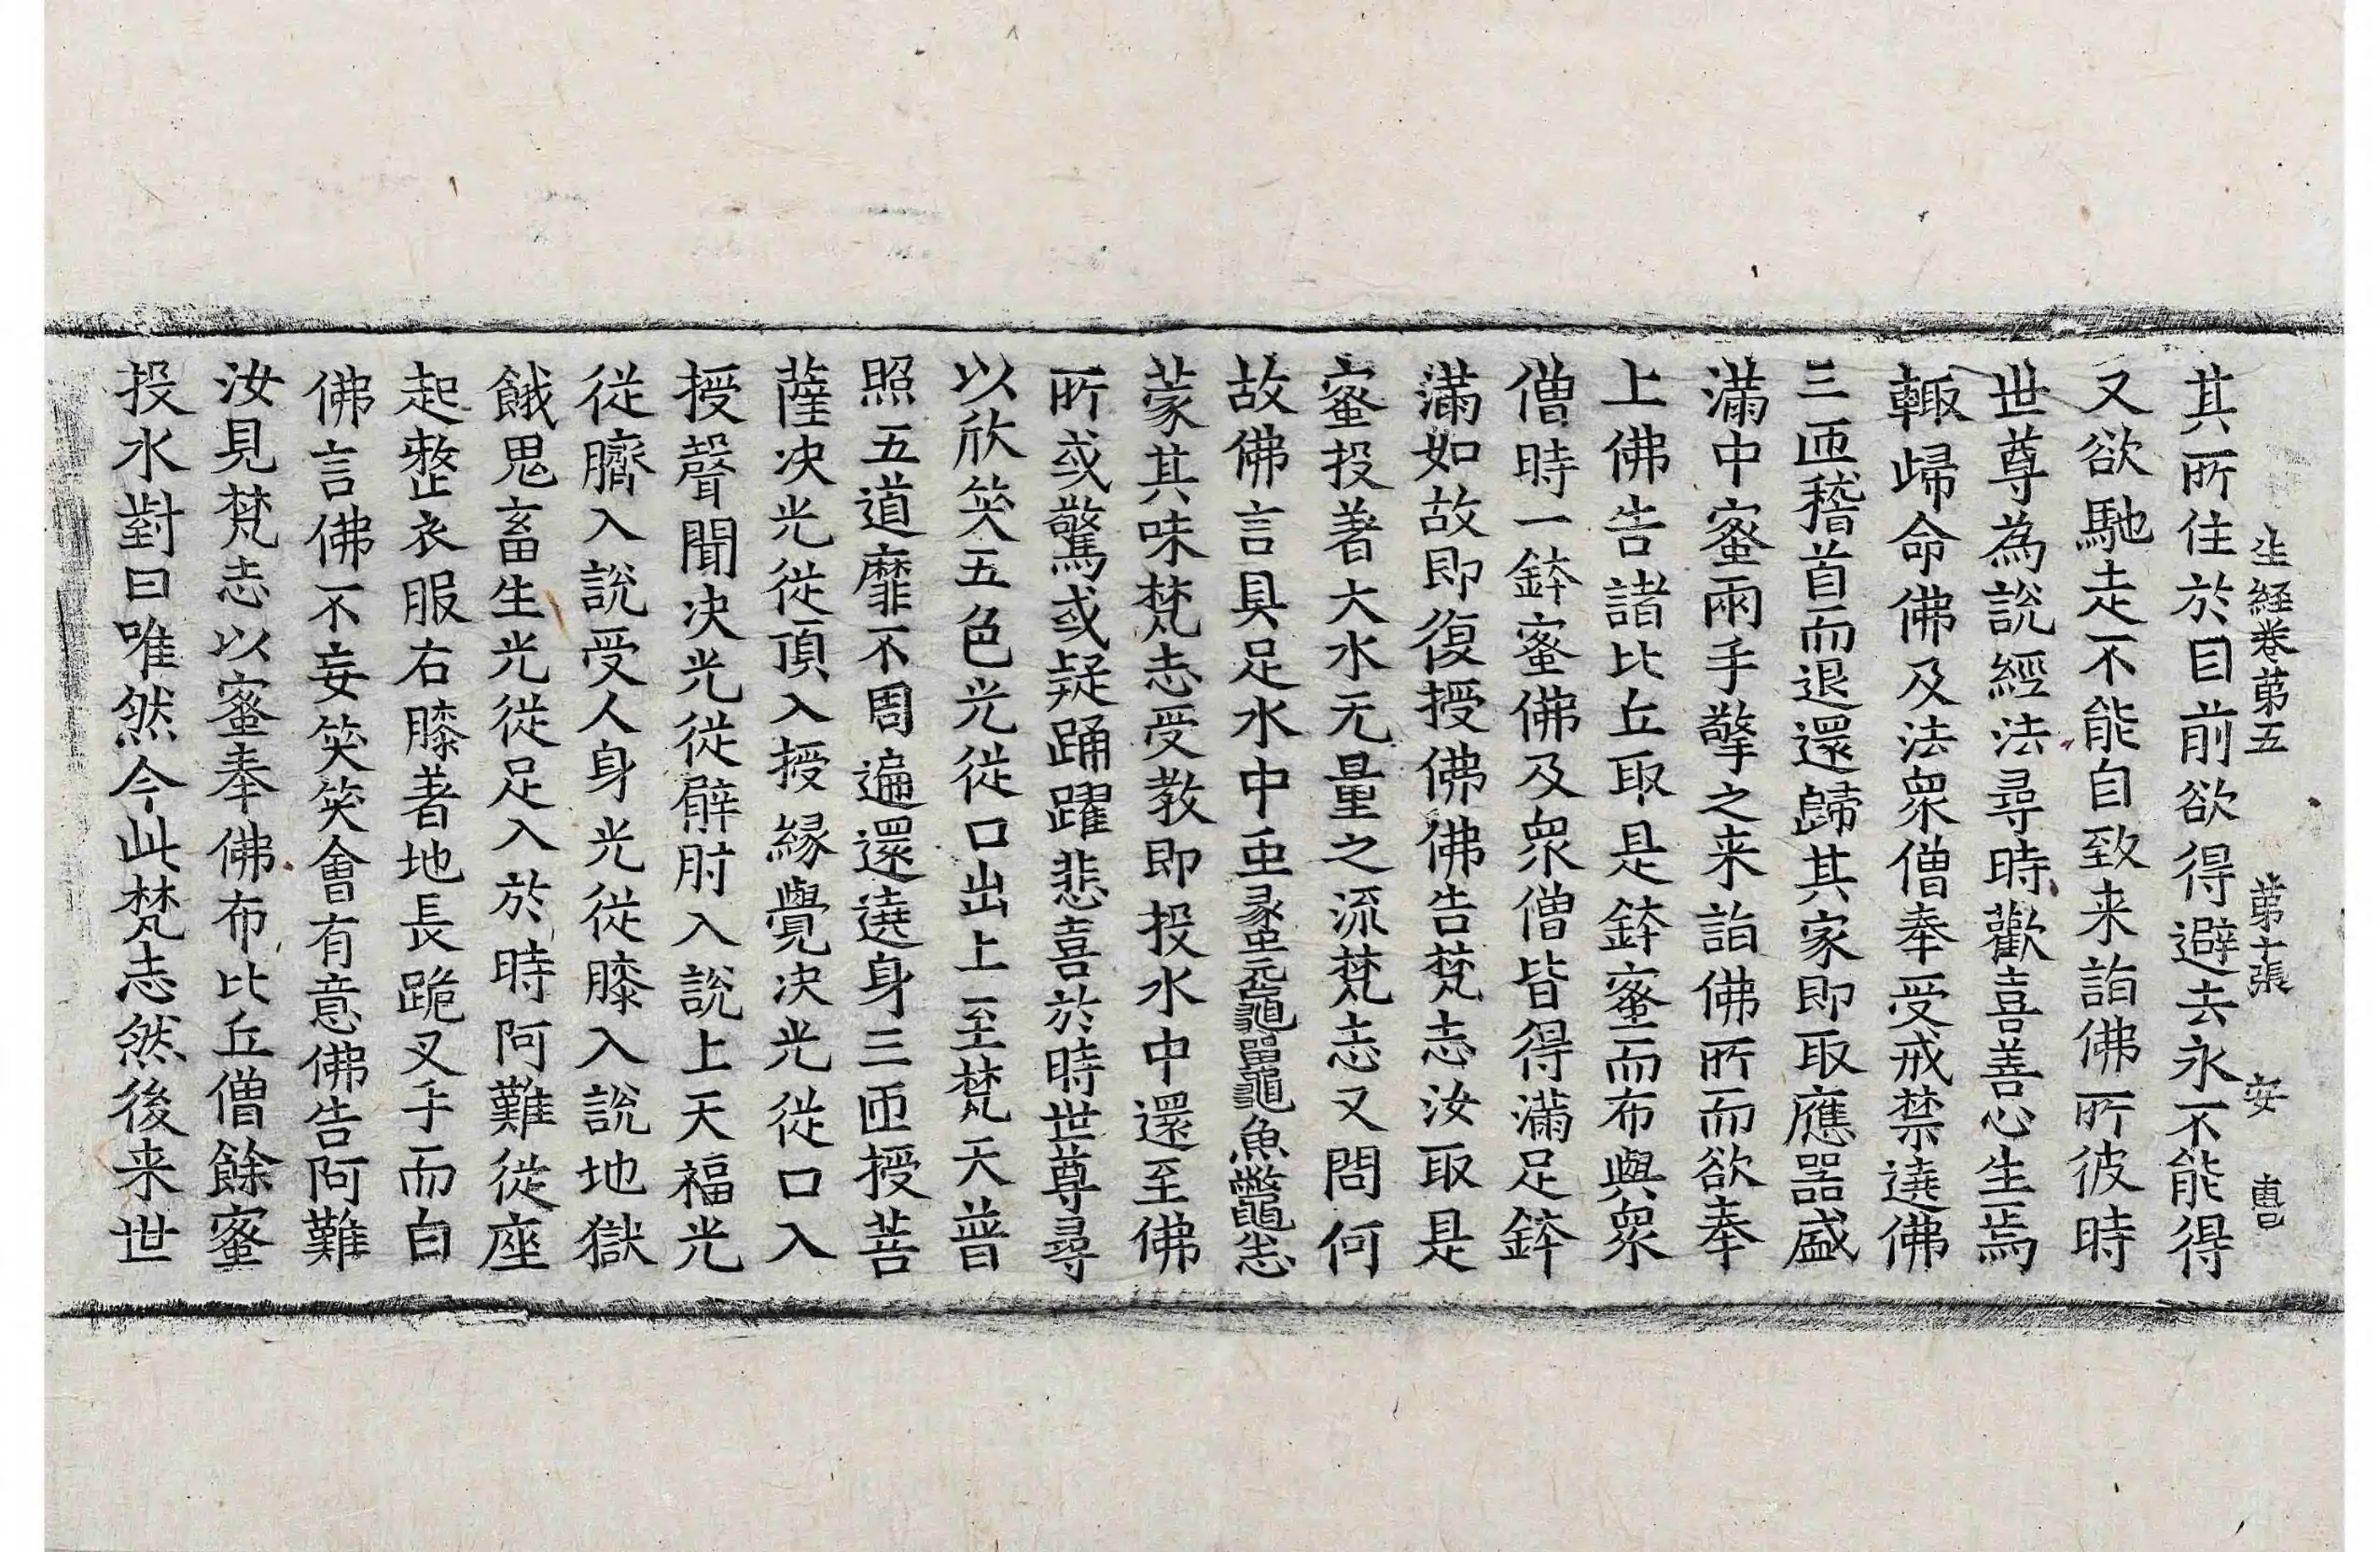 生経卷苐五　苐十張　安　曺
其所住於目前欲得避去永不能得
又欲馳走不能自致来詣佛所彼時
世尊為説經法尋時歡喜善心生焉
輙歸命佛及法衆僧奉受戒禁遶佛
三匝稽首而退還歸其家即取應器盛
滿中蜜兩手擎之来詣佛所而欲奉
上佛告諸比丘取是鉢蜜而布與衆
僧時一鉢蜜佛及衆僧皆得滿足鉢
滿如故即復授佛佛告梵志汝取是
蜜投著大水无量之流梵志又問何
故佛言具足水中虫蟸元龜黿鼉魚鼈志
蒙其味梵志受教即投水中還至佛
所或驚或疑踊躍悲喜於時世尊尋
以欣笑五色光從口出上至梵天普
照五道靡不周遍還遶身三匝授菩
薩决光從頂入授緣覺决光從口入
授聲聞决光從臂肘入説上天福光
從臍入説受人身光從膝入説地獄
餓鬼畜生光從足入於時阿難從座
起整衣服右膝著地長跪叉手而白
佛言佛不妄笑笑會有意佛告阿難
汝見梵志以蜜奉佛布比丘僧餘蜜
投水對曰唯然今此梵志然後来世